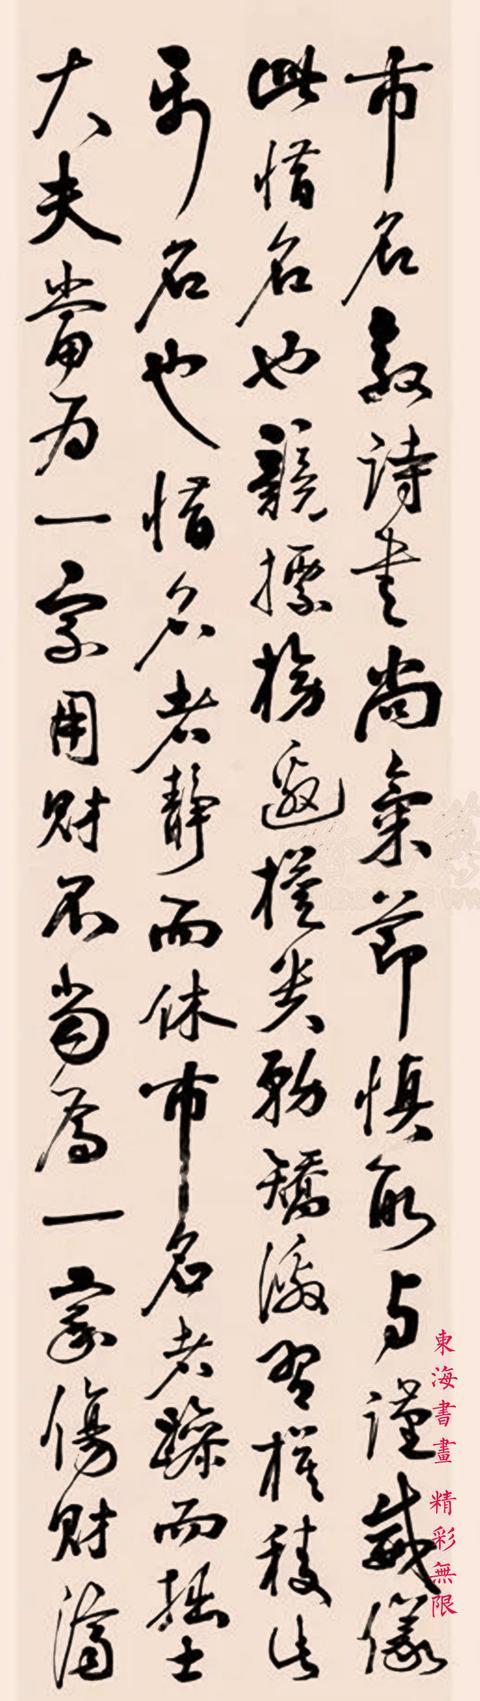 市名敦詩書尚氣節慎取与謹威儀
此惜名也競標榜邀權貴務矯激習模稜此
市名也惜名者靜而休市名者躁而拙士
大夫當为一家用財不當為一家傷財濟
東海書畫 精彩無限